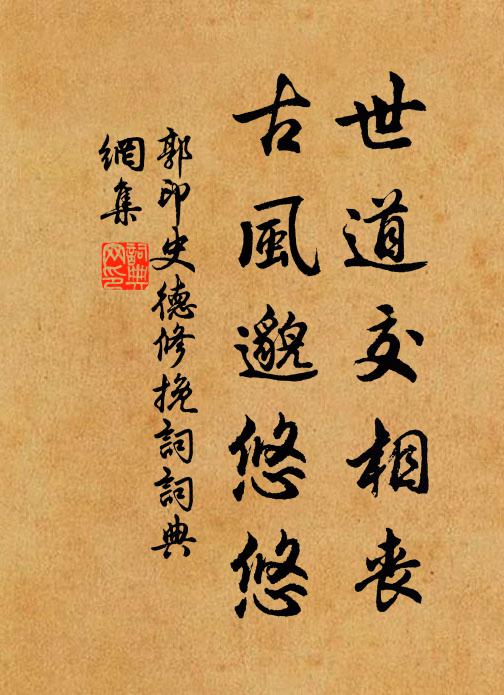 世道交相喪
古風邈悠悠
郭印史德修挽詞詞典
網集
詞典
网印